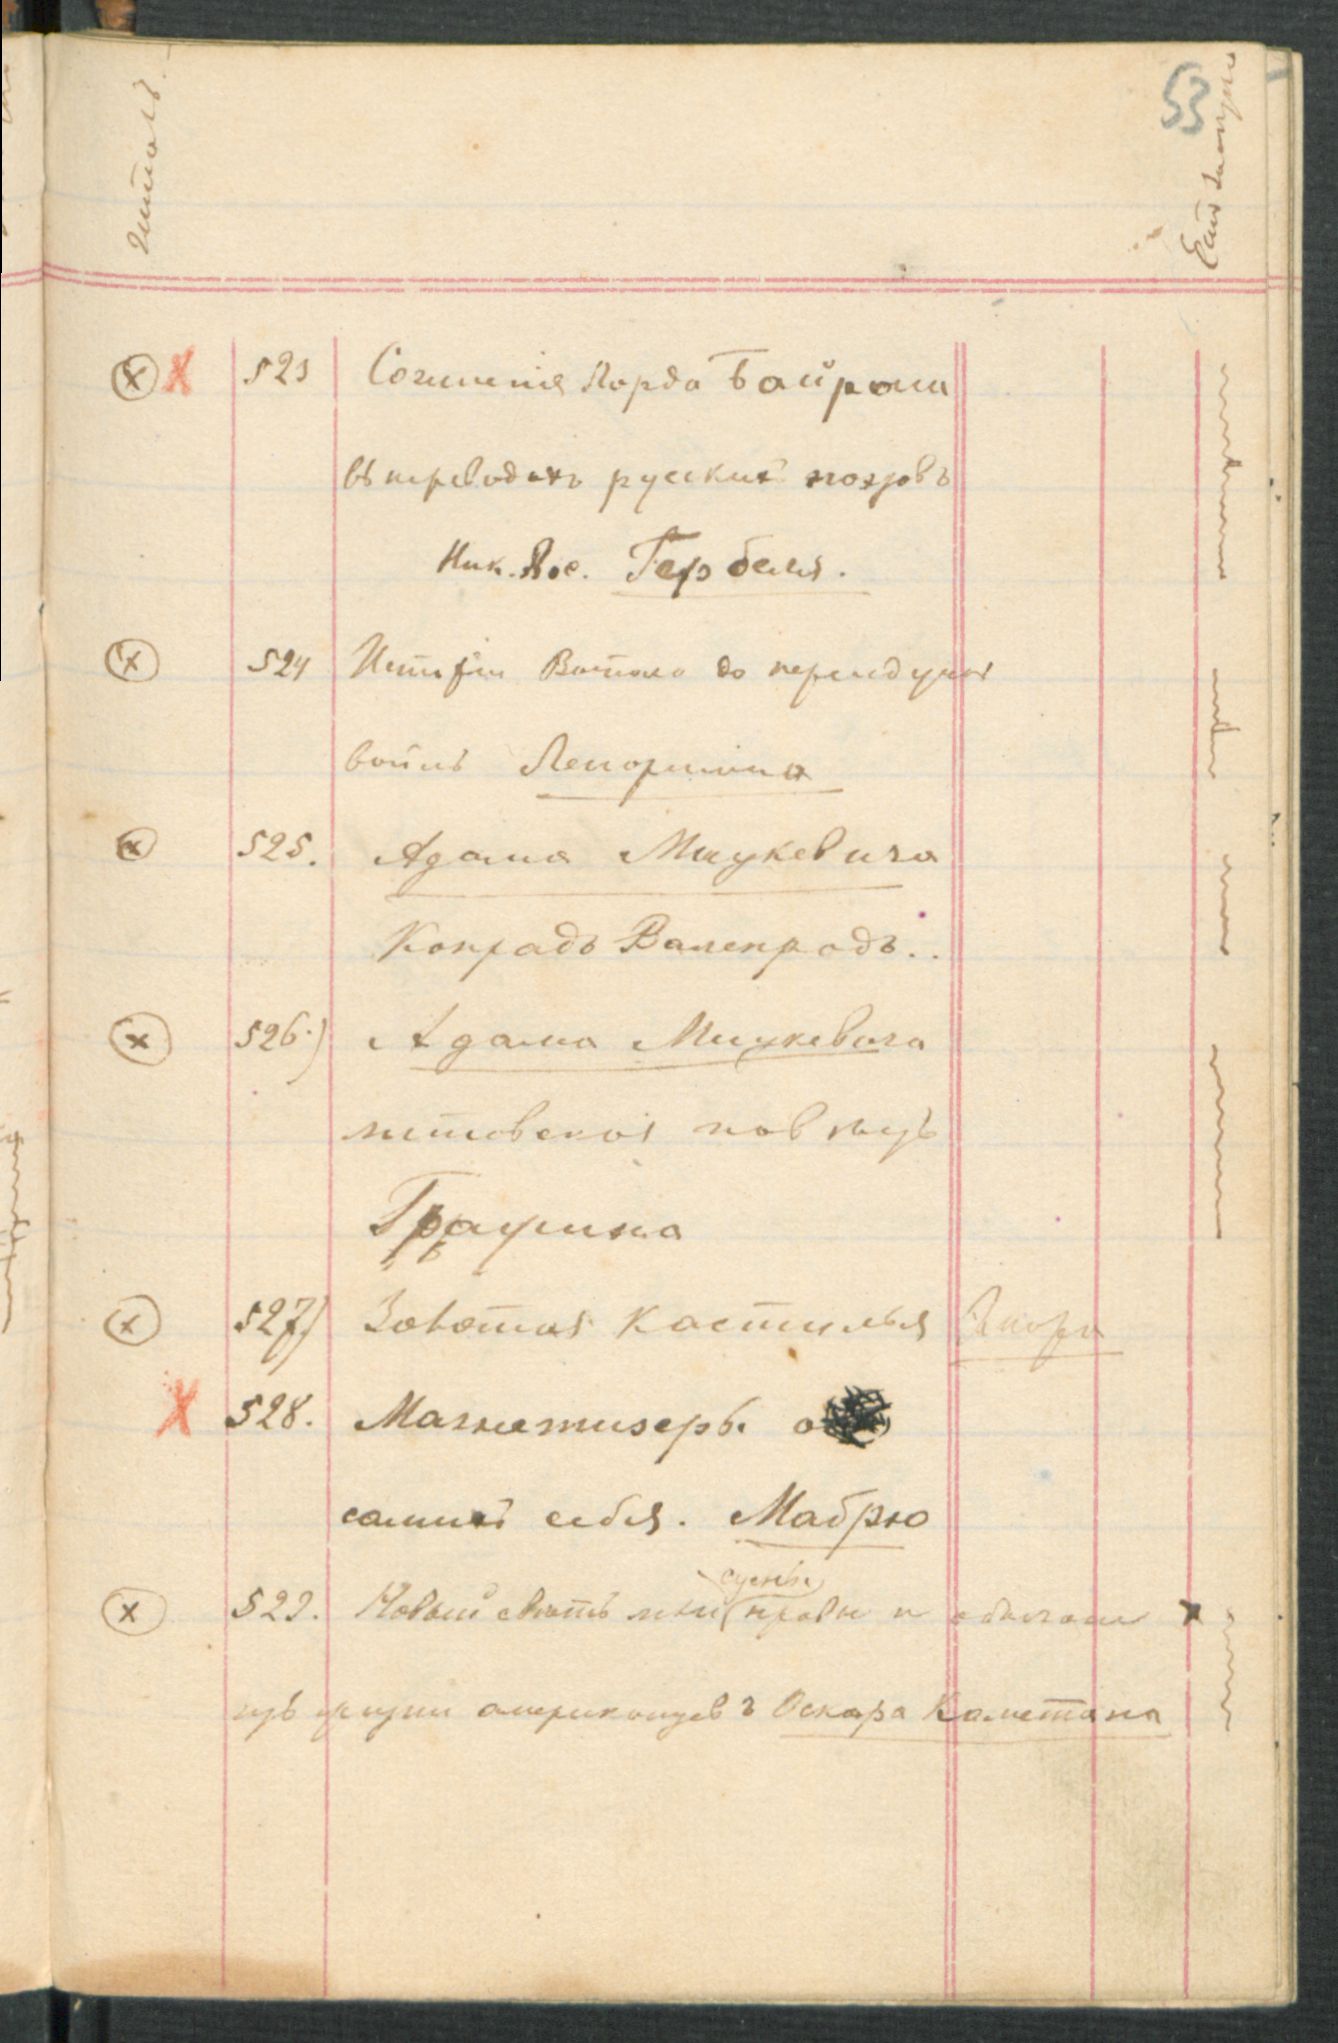 53
читалъ
523 Сочиненія Лорда Байрона
въ переводахъ русскихъ поэтовъ
Ник. Вас. Гербеля.
524 Исторія Востока до персидских
войнъ Ленормана
525. Адама Мицкевича
Конрадъ Валенродъ..
526.) Адама Мицкевича
литовская повѣсть
Гражина
527) Золотая Кастилья Эмара
528. Магнетизеръ о
самихъ себя. Мабрю
529. Новый свѣтъ или (нравы и обычаи
сцены
изъ жизни американцевъ Оскара Каметана